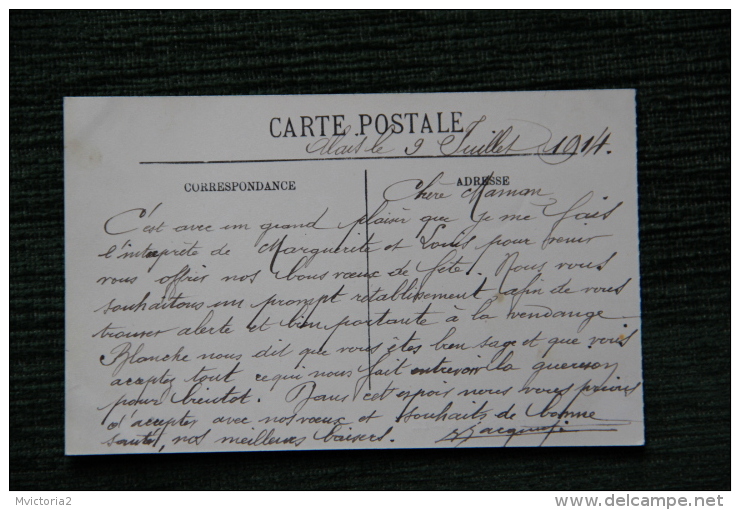 CARTE POSTALE
Alais le 9 Juillet 1914.
CORRESPONDANCE
ADRESSE
Chère Maman
C'est avec un grand plaisir que je me fais
l'interprète de Marguerite et Louis pour venir
vous offrir nos bons vœux de fête. Nous vous
souhaitons un prompt rétablissement afin de vous
trouver alerte et bien portante à la vendange
Blanche nous dit que vous êtes bien sage et que vous
acceptez tout ce qui nous fait entrevoir la guérison
pour bientot. Dans cet espoir nous vous prions
d'accepter avec nos vœux et souhaits de bonne
santé, nos meilleurs baisers.
Mvictoria2
http://www.delcampe.net